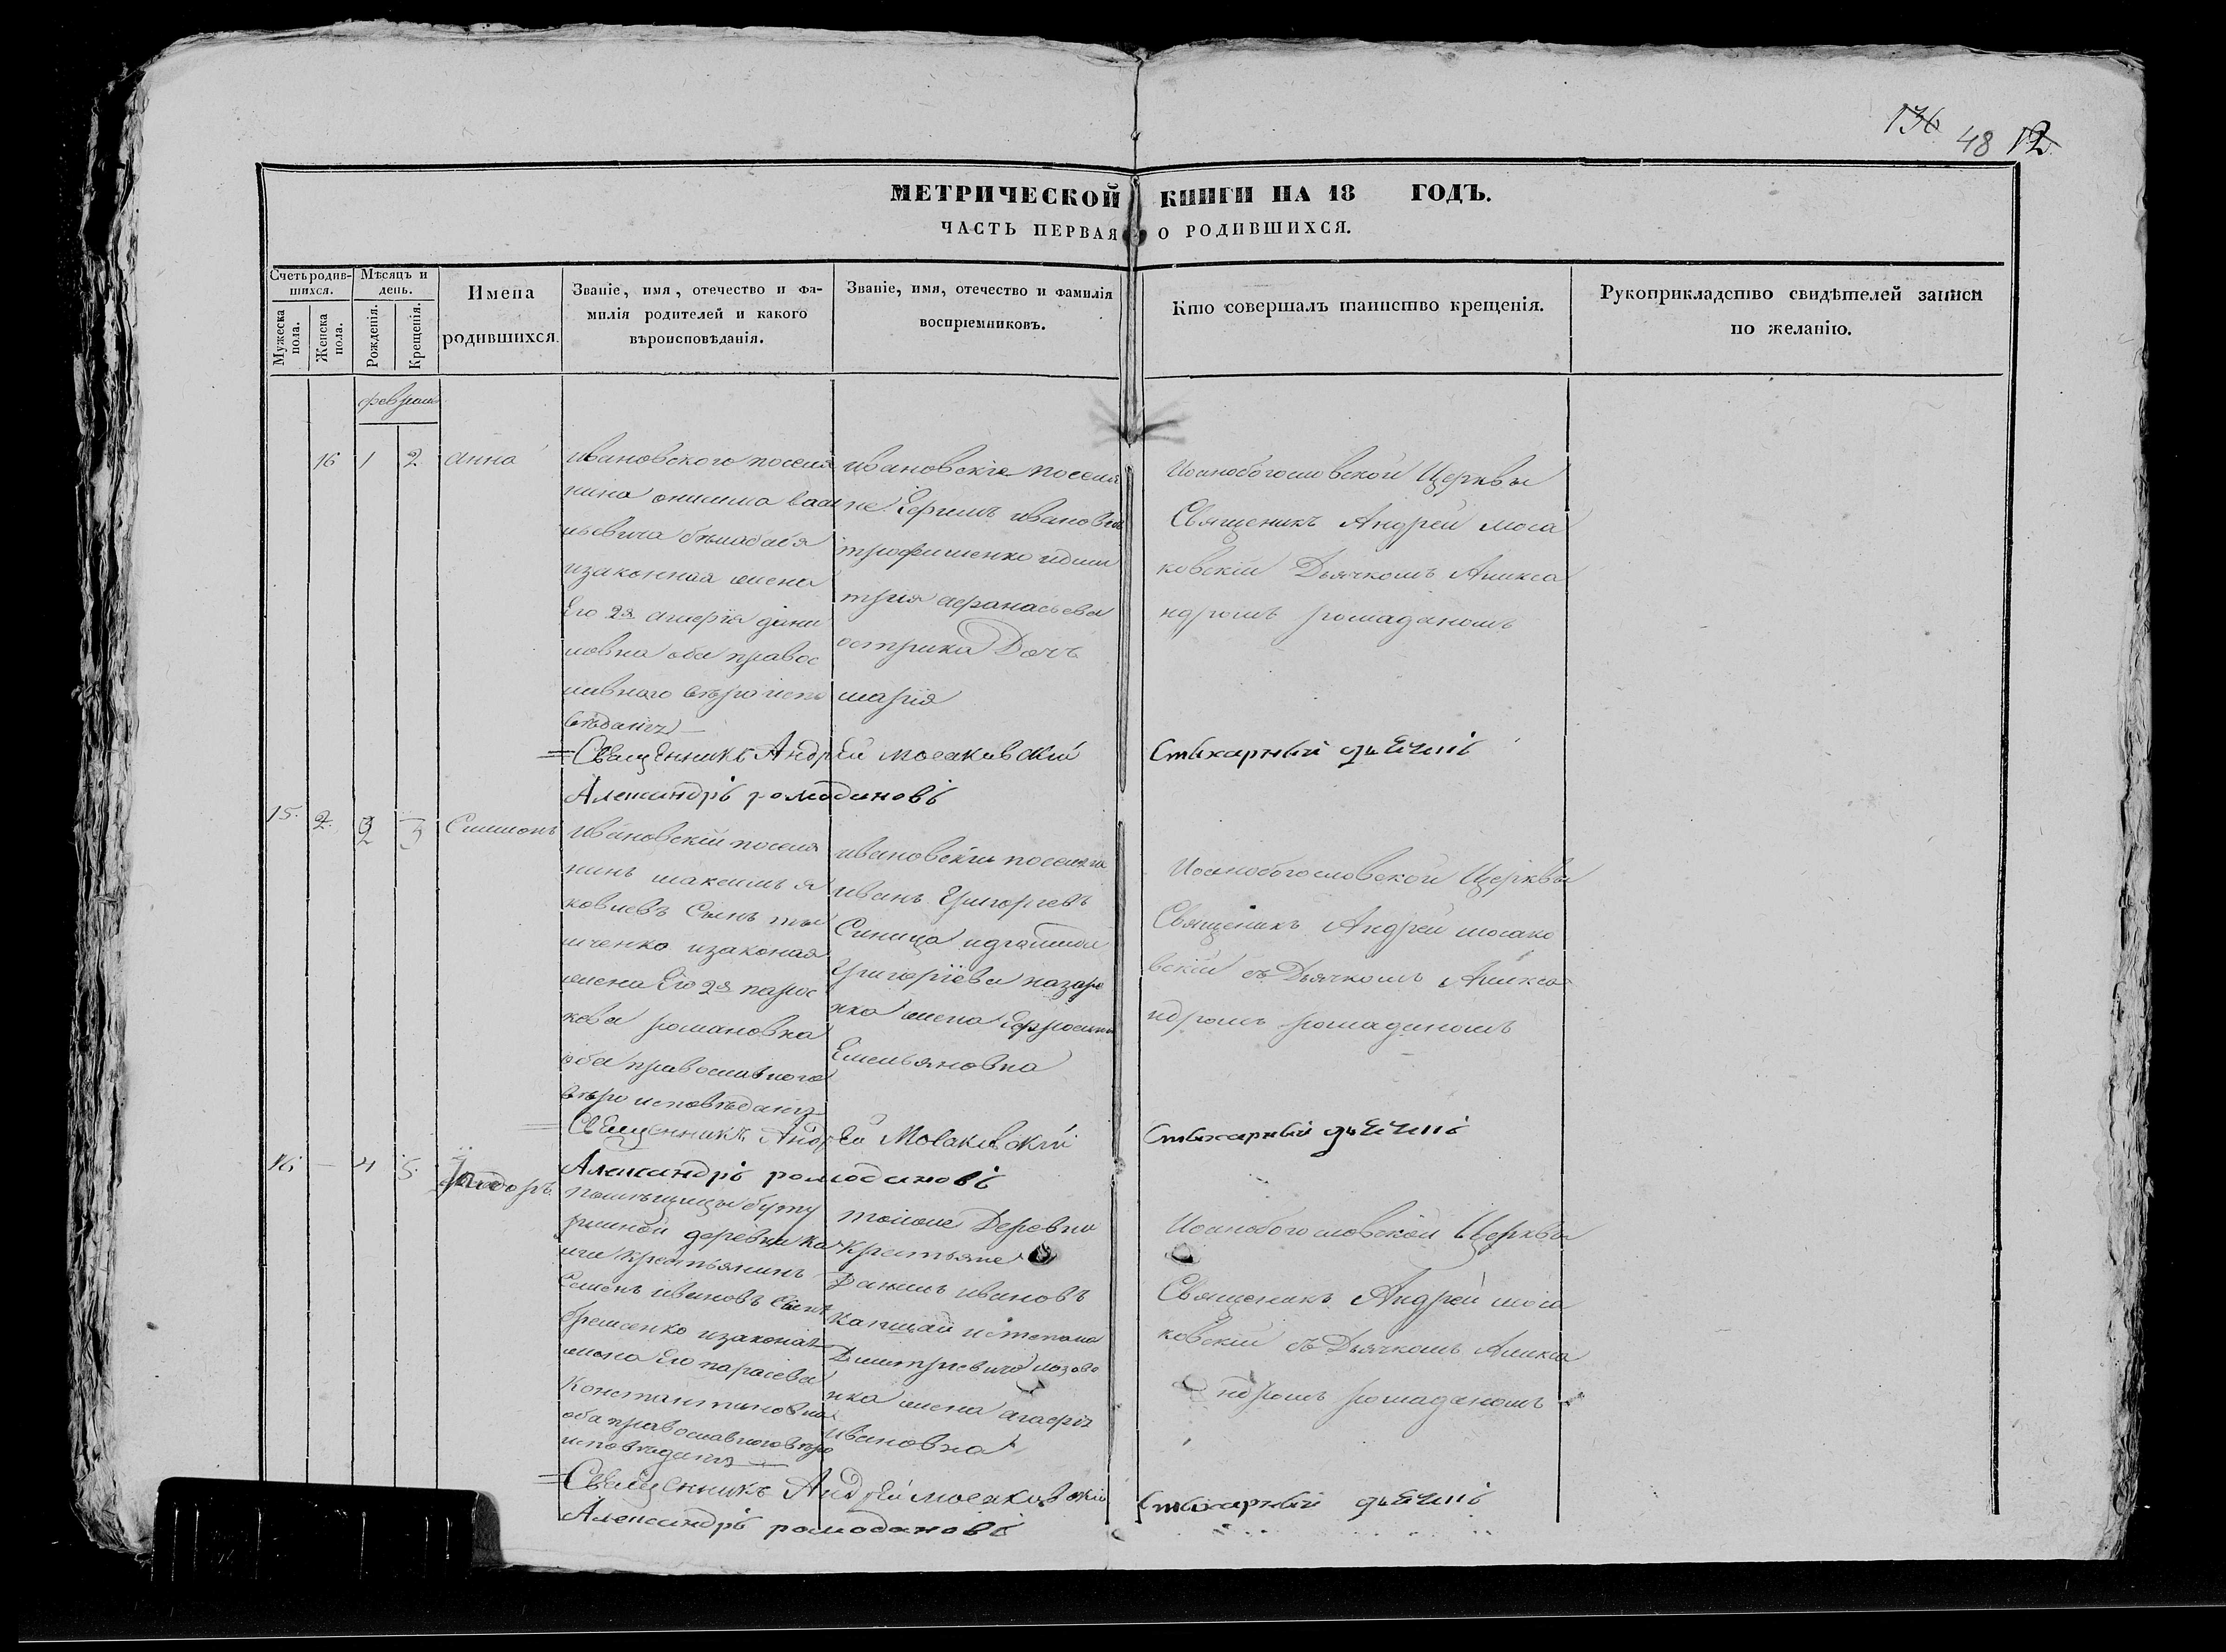 136 48 12
МЕТРИЧЕСКОЙ КНИГИ НА 18 ГОДЪ.
ЧАСТЬ ПЕРВАЯ О РОДИВШИХСЯ.
Счетъ родив-
шихся.
Мужеска пола.
Женска пола.
Мѣсяцъ и
день.
Рожденія.
Крещенія.
Имена
родившихся.
Званіе, имя, отечество и фа-
милія родителей и какого
вѣроисповѣданія.
Званіе, имя, отечество и фамилія
воспріемниковъ.
Кто совершалъ таинство крещенія.
Рукоприкладство свидѣтелей записи
по желанію.
февраль
16 1 2 анна
ивановского поселя
нина онисима васи
льевича
изаконная жена
Его 2я агафія дани
ловна оба правос
лавного вѣроиспо
вѣданія
ивановскіе поселя
не Ефимъ ивановъ
трофименко идми
трия афанасьева
острика Дочъ
марія
Иоанобогословской Церквы
Священикъ Андрей моса
ковскій Дьячкомъ Алекса
ндромъ ромаданомъ
Священникъ Андрей мосаковскій
Стихарный
Александръ ромодановъ
15. 2 3 Симионъ
ивановскій поселя
нинъ максимъ я
ковлевъ Сынъ
изаконая
жена Его 2я парас
кева романовна
оба православного
вѣроисповѣданія
ивановскіе поселяне
иванъ Григорьевъ
Синица
Григоріева назаре
нка жена Ефросинія
Емельяновна
Иоанобогословской Церквы
Священикъ Андрей мосако
вскій съ Дьячкомъ Алекса
ндромъ ромаданомъ
Священникъ Андрей Мосаковскій
Стихарный
Александръ ромодановъ
16 — 4 5
помѣщицы
деревни
крестьянинъ
Семенъ ивановъ Сынъ
изаконая
жена Его парасева
Константиновна
оба православного вѣро
исповѣданія
тойже Деревни
крестьяне
Данилъ ивановъ
истепана
Дмитриевича лозове
нка жена агафія
ивановна
Иоанобогословской Церквы
Священикъ Андрей моса
ковскій съ Дьячкомъ Алекса
ндромъ ромаданомъ
Священникъ Андрей мосаковскій
Стихарный
Александръ ромодановъ